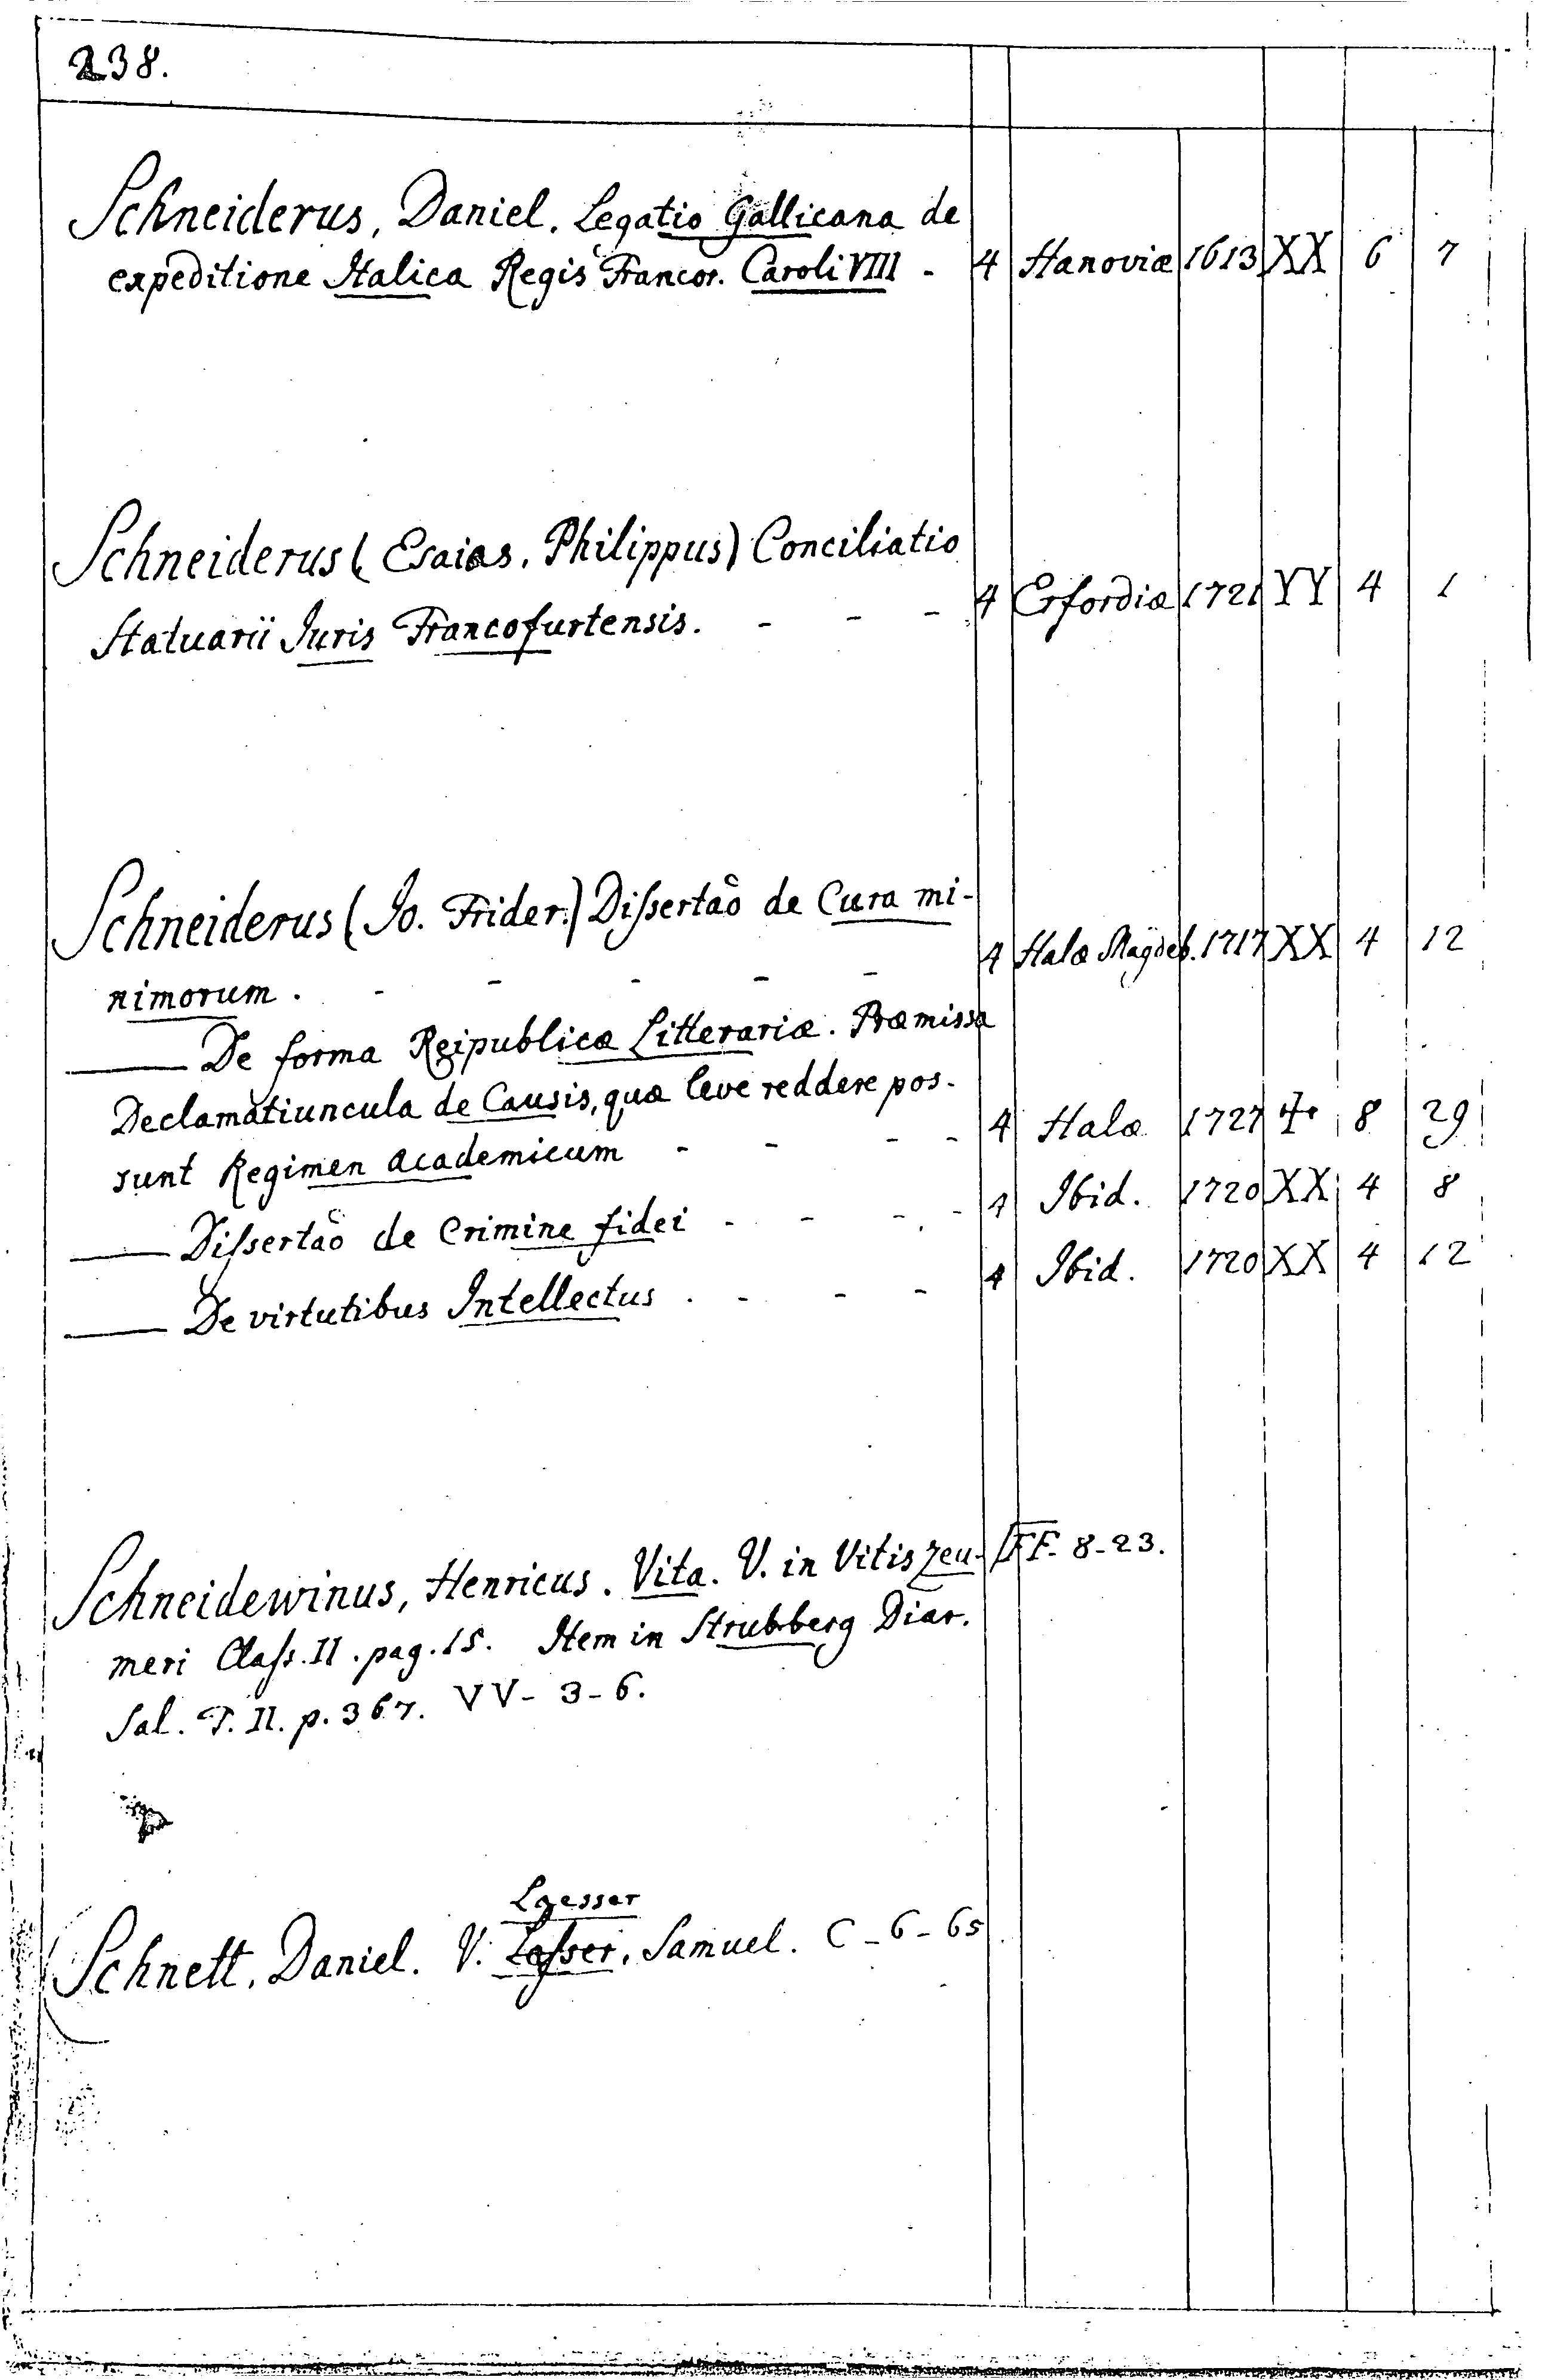 238.
Schneiderus, Daniel. Legatio Gallicana de
expeditione Italica Regis Francor. Caroli VIII - 4 Hanoviæ 1613 XX 6 7
Schneiderus (Esaias. Philippus) Conciliatio
Statuarii Juris Francofurtensis. - - - 4 Erfordiæ 1721 YY 4 1
Schneiderus (Jo. Frider.) Dissertaõ de Cura mi-
nimorum. - - - - - 4 Halæ Magdeb. 1717 XX 4 12
—— De forma Reipublicæ Litterariæ. Præmissa
Declamatiuncula de Causis, quæ leve reddere pos-
sunt Regimen academicum - - - - 4 Halæ 1727 8 29
—— Dissertaõ de Crimine fidei - - - - 4 Ibid. 1720 XX 4 8
—— De virtutibus Intellectus . - - - 4 Ibid. 1720 XX 4 12
Schneidewinus, Henricus. Vita. V. in Vitis Zeu- FF- 8-23.
meri Class. II. pag. 15. Item in Strubberg Diar.
Sal. P. II. p. 367. VV- 3-6.
Loesser
Schnett, Daniel. V. Losser, Samuel. C-6-65